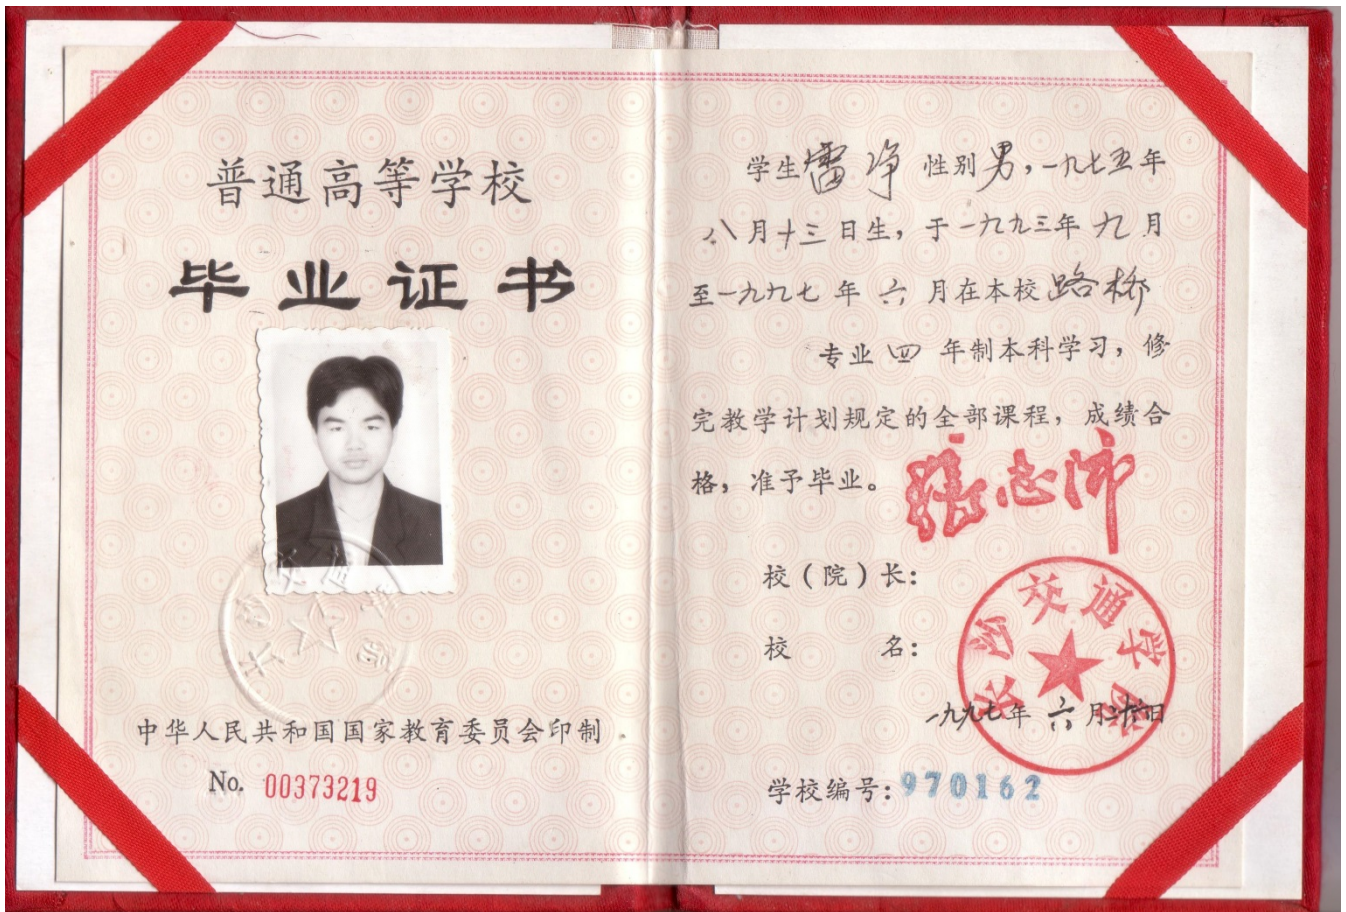 普通高等学校
毕业证书
长沙交通学院
中华人民共和国国家教育委员会印制
No. 00373219
学生雷净 性别男，一九七五年
八月十三日生，于一九九三年九月
至一九九七年六月在本校路桥
专业四年制本科学习，修
完教学计划规定的全部课程，成绩合
格，准予毕业。
校（院）长：
校 名：
长沙交通学院
一九九七年六月 日
学校编号：970162